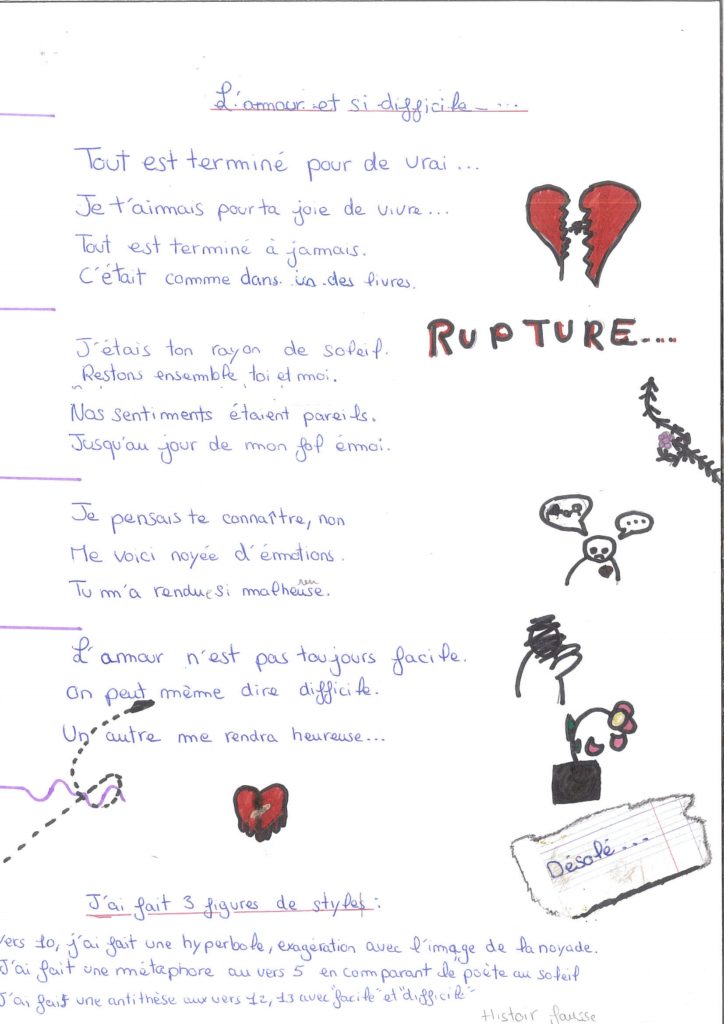 L'amour et si difficile-...
Tout est terminé pour de vrai...
Je t'airmais pour ta joie de vivre...
Tout est terminé à jamais.
C'était comme dans des livres.
RUPTURE....
J'étais ton rayon de soleil.
Restons ensemble toi et moi.
Nos sentiments étaient pareils.
Jusqu'au jour de mon fol émoi.
Je pensais te connaître, non
...
Me voici noyée d'émotions.
Tu m'a rendue si malheureuse.
L'amour n'est pas toujours facile.
On peut même dire difficile.
Un autre me rendra heureuse...
Désolé...
J'ai fait 3 figures de styles:
Vers 10, j'ai fait une hyperbole, exagération avec l'image de la noyade.
J'ai fait une métaphore au vers 5 en comparant le poète au soleil
J'ai fait une antithèse aux vers 12, 13 avec "facile" et "difficile"
Histoir fausse